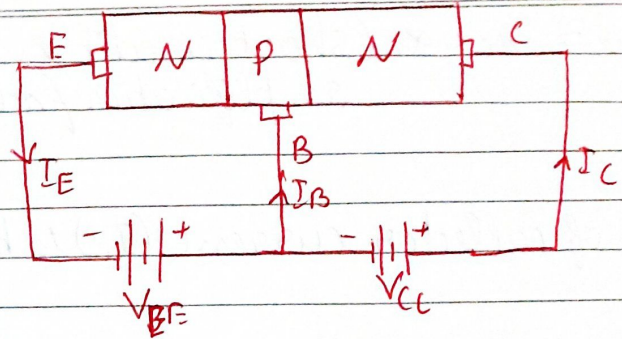 E N P N C
B
I_E I_B I_C
- + - +
V_BE V_CC